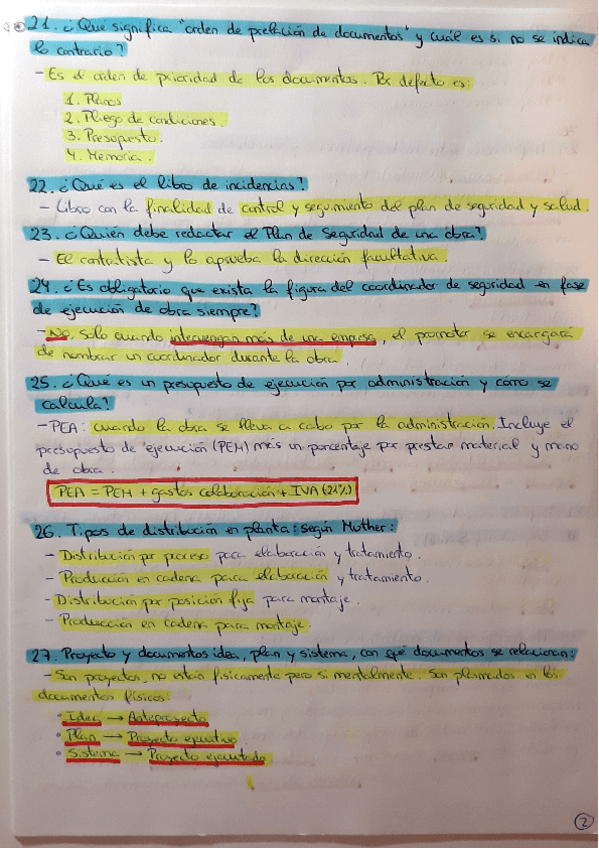 21. ¿Qué significa "orden de prelación de documentos" y cuál es si no se indica
lo contrario?
- Es el orden de prioridad de los documentos. Por defecto es:
1. Planos
2. Pliego de condiciones.
3. Presupuesto.
4. Memoria.
22. ¿Qué es el libro de incidencias?
- Libro con la finalidad de control y seguimiento del plan de seguridad y salud.
23. ¿Quién debe redactar el Plan de Seguridad de una obra?
- El contratista y lo aprueba la dirección facultativa.
24. ¿Es obligatorio que exista la figura del coordinador de seguridad en fase
de ejecución de obra siempre?
- No, solo cuando intervengan más de una empresa, el promotor se encargará
de nombrar un coordinador durante la obra.
25. ¿Qué es un presupuesto de ejecución por administración y cómo se
calcula?
- PEA: cuando la obra se lleva a cabo por la administración. Incluye el
presupuesto de ejecución (PEM) más un porcentaje por prestar material y mano
de obra.
PEA = PEM + gastos colaboración + IVA (21%)
26. Tipos de distribución en planta: según Muther:
- Distribución por proceso para elaboración y tratamiento.
- Producción en cadena para elaboración y tratamiento.
- Distribución por posición fija para montaje.
- Producción en cadena para montaje.
27. Proyecto y documentos idea, plan y sistema, con qué documentos se relacionan:
- Son proyectos, no están físicamente pero si mentalmente. Son plasmados en los
documentos físicos:
• Idea → Anteproyecto
• Plan → Proyecto ejecutivo
• Sistema → Proyecto ejecutado
2